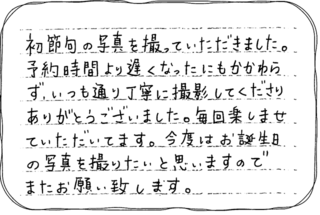 初節句の写真を撮っていただきました。
予約時間より遅くなったにもかかわら
ず、いつも通り丁寧に撮影してくださり
ありがとうございました。毎回楽しませ
ていただいてます。今度はお誕生日
の写真を撮りたいと思いますので
またお願い致します。